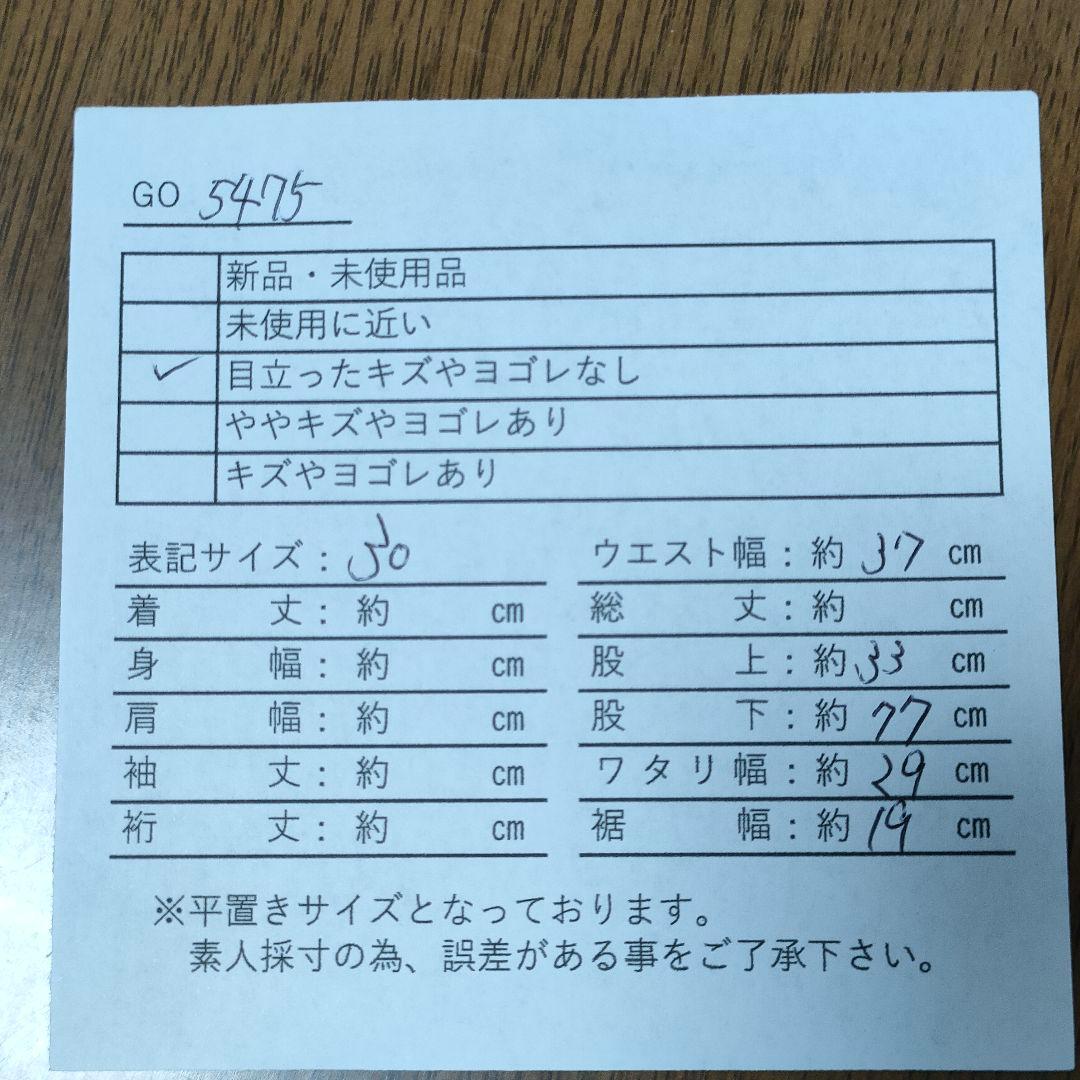 GO 5475
新品・未使用品
未使用に近い
✓ 目立ったキズやヨゴレなし
ややキズやヨゴレあり
キズやヨゴレあり
表記サイズ：30
着丈：約 cm
身幅：約 cm
肩幅：約 cm
袖丈：約 cm
裄丈：約 cm
ウエスト幅：約 37 cm
総丈：約 cm
股上：約 33 cm
股下：約 77 cm
ワタリ幅：約 29 cm
裾幅：約 19 cm
※平置きサイズとなっております。
素人採寸の為、誤差がある事をご了承下さい。